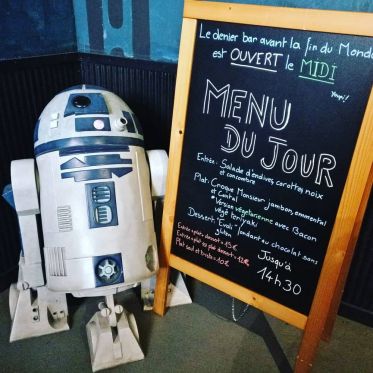 Le dernier bar avant la fin du Monde
est OUVERT le MIDI
Youpi!!
MENU
DU JOUR
Entrée: Salade d'endives, carottes, noix
et concombre
Plat: Croque Monsieur jambon, emmental
et Cantal
* Version végétarienne avec Bacon
végé teriyaki
Dessert: "Evoli" fondant au chocolat sans
gluten
Entrée + plat + dessert = 15€
Entrée + plat ou plat + dessert = 12€
Plat seul et bretz = 10€
Jusqu'à
14h30